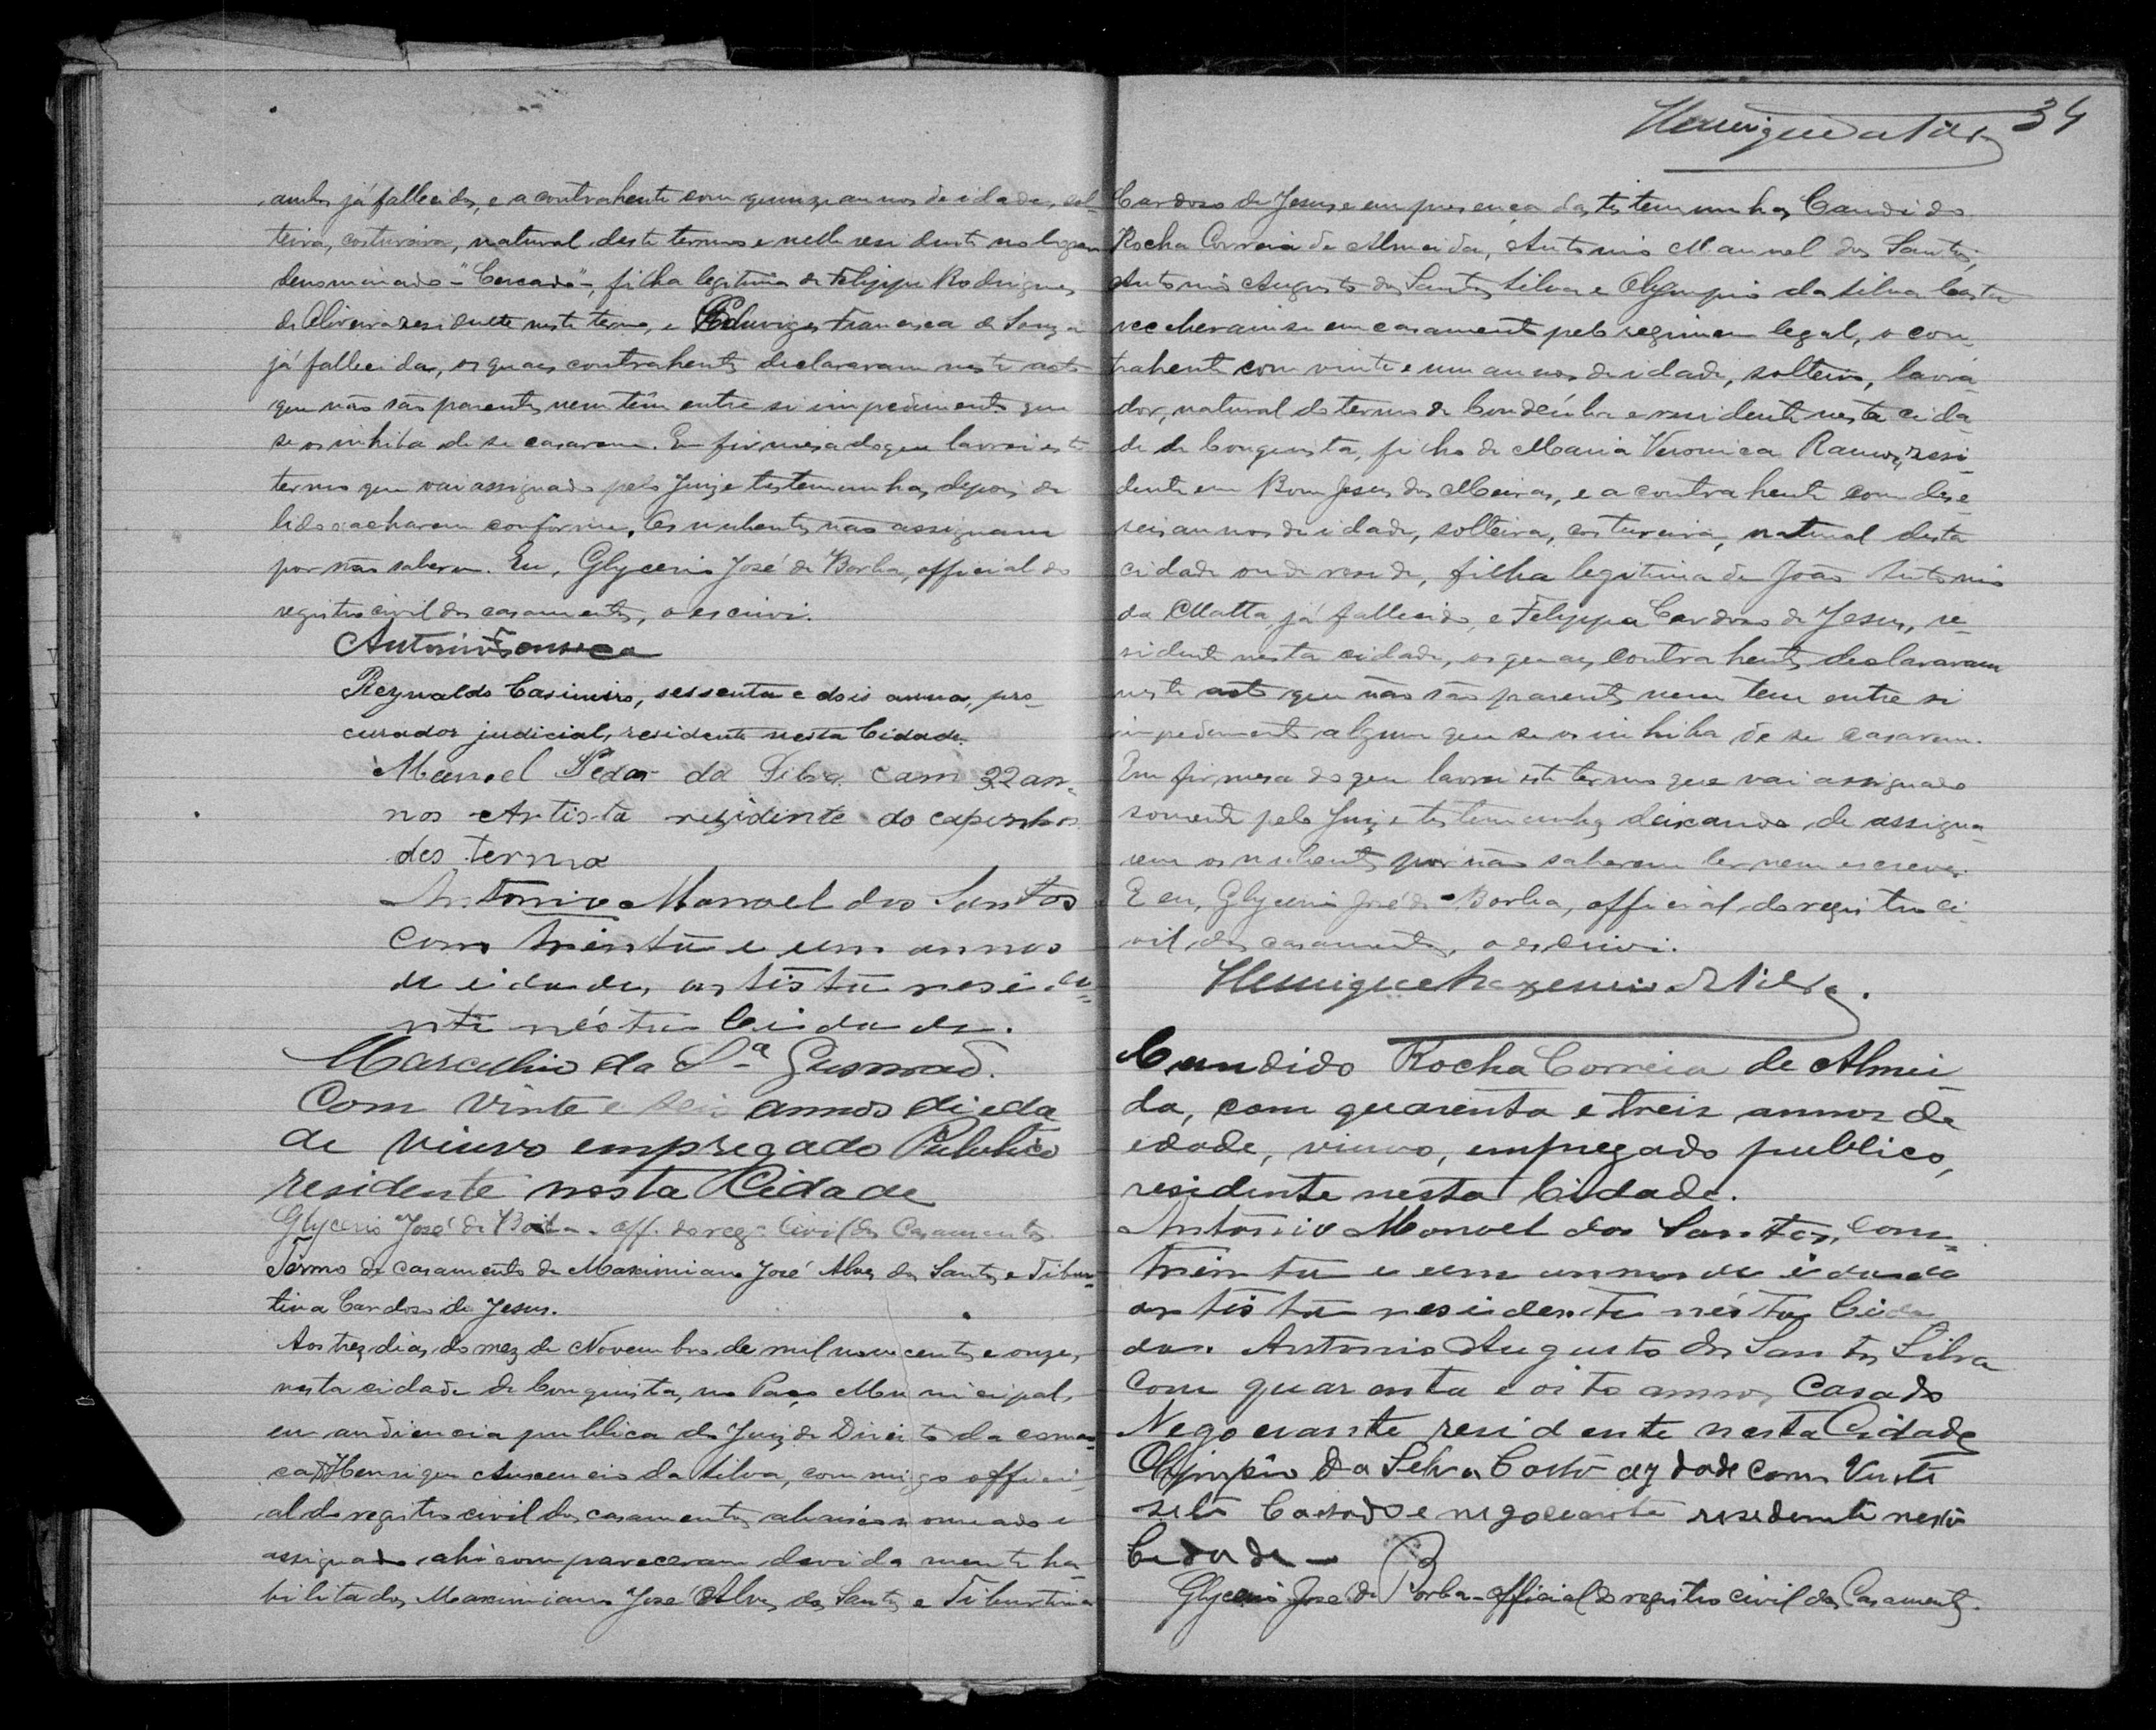 ambos já fallecidos, e a contrahente com quinze annos de idade, sol-
teira, costureira, natural deste termo e nelle residente no logar
denominado - "Cercado" -, filha legitima de Felippe Rodrigues
de Oliveira residente neste termo, e Eduviges Francisca de Souza
já fallecida, os quaes contrahentes declararam neste acto
que não são parentes nem têm entre si impedimento que
se os inhiba de se casarem. Em firmesa do que lavrei este
termo que vai assignado pelo Juiz e testemunhas, depois de
lido e acharem conforme. Os nubentes não assignam
por não saberem. Eu, Glycerio José de Borba, official do
registro civil dos casamentos, o escrivi.
Antonio Fonseca
Reynaldo Casimiro, sessenta e dois annos, pro-
curador judicial, residente nesta Cidade.
Manoel Pedor da Silva cam 32 an-
nos Artista rezidente do capinhos
des termo
Antonio Manoel dos Santos
com trinta e um annos
de idade, artista resid
nte nésta Ceidade.
Marculino da Sª Gusmaõ.
Com vinte e seis annos di eda
de viuvo empregado Publico
residente nesta Cidade
Glycerio José de Borba - off. do regº Civil dos Casamentos
Termo de casamento de Maximiano José Alves dos Santos e Tibur-
tina Cardoso de Jesus.
Aos trez dias do mez de Novembro de mil novecentos e onze,
nesta cidade de Conquista, no Paço Municipal,
em audiencia publica do Juiz de Direito da comar-
ca Henrique Auxencio da Silva, commigo offici-
al do registro civil dos casamentos abaixo nomeado e
assignado ahi compareceram devidamente ha-
bilitados, Maximiano José Alves dos Santos e Tiburtina
Henrique da Silva 34
Cardoso de Jesus, e em presença das testemunhas Candido
Rocha Correia de Almeida, Antonio Manoel dos Santos,
Antonio Augusto dos Santos Silva e Olympio da Silva Costa
receberam-se em casamento pelo regimem legal, o con-
trahente com vinte e um annos de idade, solteiro, lavra-
dor, natural do termo de Condeúba e residente nesta cida-
de de Conquista, filho de Maria Veronica Ramos, resi-
dente em Bom Jesus dos Meiras, e a contrahente com dese-
seis annos de idade, solteira, costureira, natural desta
cidade onde reside, filha legitima de João Antonio
da Matta já fallecido, e Felippa Cardoso de Jesus, re-
sidente nesta cidade, os quaes contrahentes declararam
neste acto que não são parentes nem tem entre si
impedimento algum que se os inhiba de se casarem.
Em firmesa do que lavrei este termo que vai assignado
somente pelo Juiz e testemunhas deixando de assigna-
rem os nubentes por não saberem ler nem escrever.
E eu, Glycerio José de Borba, official do registro ci-
vil dos casamentos, o escrivi.
Henrique Auxencio da Silva.
Candido Rocha Correia de Almei
da, com quarenta e treis annos de
edade, viuvo, empregado publico,
residente nesta Cidade.
Antonio Manoel dos Santos, com
trinta e um annos de idade
artista residente nésta Cida
de. Antonio Augusto dos Santos Silva
com quarenta e oito annos, Casado
Negociante residente nesta Cidade
Olimpio da Selva Costa com Vinti
seti Casado e negociante resedente nesta
Cidade -
Glycerio José de Borba - official do registro civil dos Casamentos.